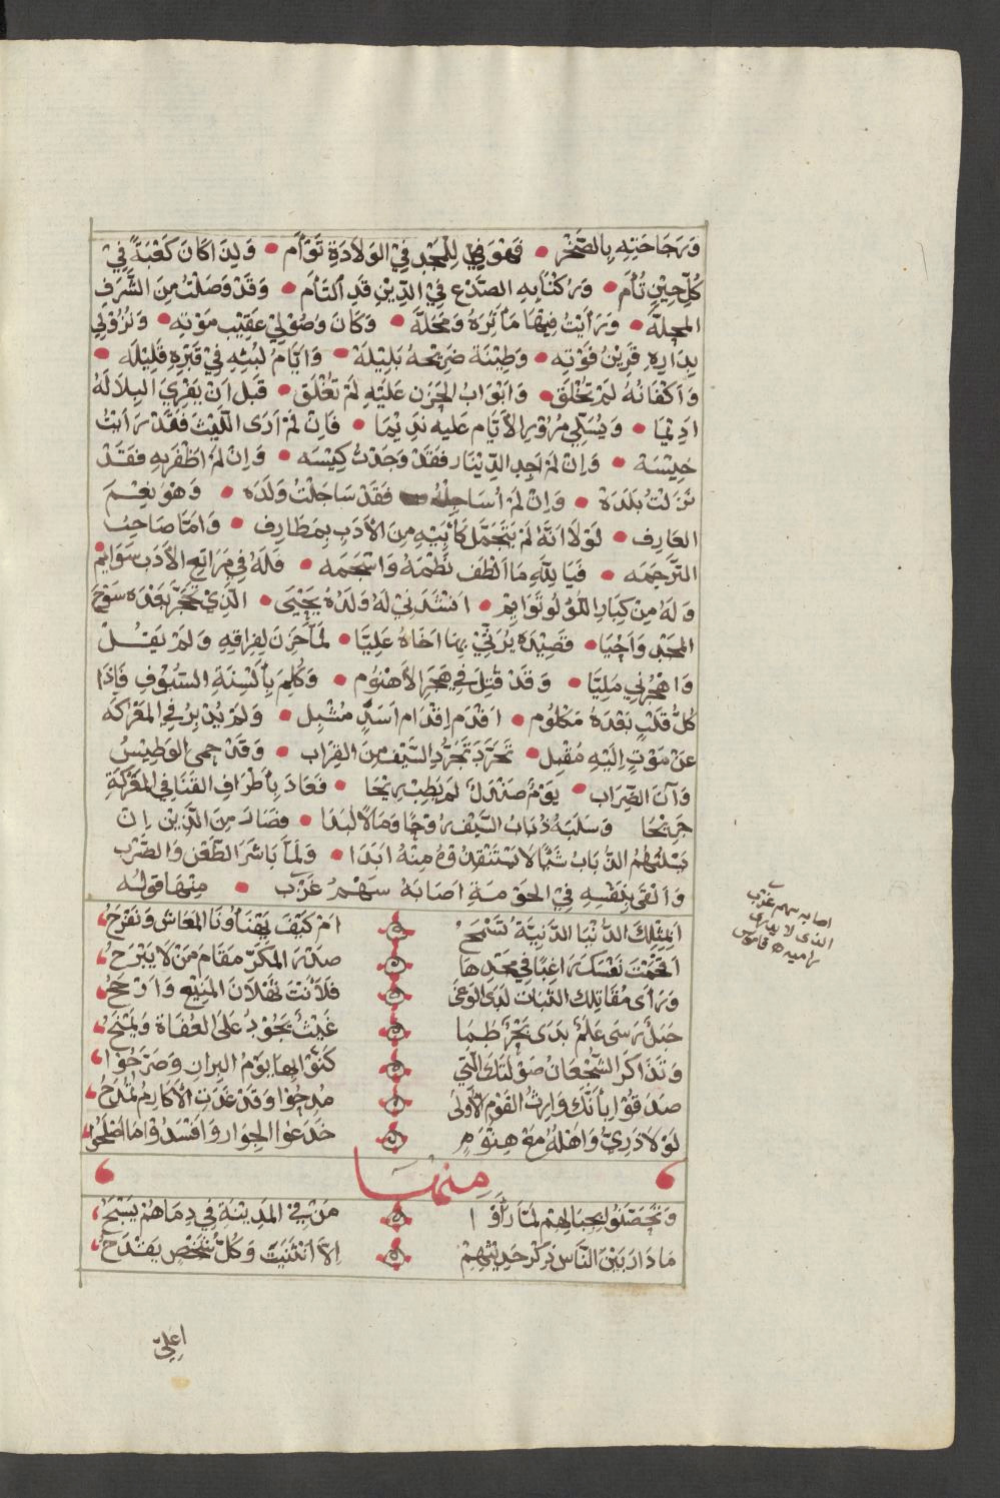 وَرَجَاحَتِهِ بِالصَّخْر • فَهْوَ فِي لِلْمَجْدِ فِي الوَلَادَةِ تَوْأَم • وَلِذَا كَانَ كَعْبَةً فِيْ
كُلِّ حِيْنٍ تُأَم • وَرُكْنًا بِهِ الصَّدْع فِيْ الدِّيْنِ قَدِ الْتَأَم • وَقَدْ وَصَلْتُ مِنَ الشَّرَفِ
المجلَّة • وَرَأَيْتُ فِيْهَا مَآثِرَهُ وَمَحَلَّه • وَكَانَ وُصُوْلِيْ عَقِيْبَ مَوْتِهِ • وَنُزُوْلِي
بِدَارِهِ قَرِيْنُ فَوْتِه • وَطِيْنَة ضَرِيْحِهُ بَلِيْلَة • وَايَّامُ لُبْثِهِ فِيْ قَبْرِهِ قَلِيْلَه •
وَاَكْفَانُهُ لَمْ تَخْلَق • وَابْوَابُ الحُزْن عَلَيْهِ لَمْ تُغْلَق • قَبْل اَنْ يَفْرِيَ البِلَا لَهُ
اَدِيْمَا • وَيُسَلِّي مُرُوْرِ الأَيَّام عَلَيه نَدِيْمَا • فَاِنْ لَمْ اَرَى اللَّيْثَ فَقَدْ رَاَيْتُ
خِيْسَهْ • وَاِنْ لَمْ اَجِدِ الدِّيْنَار فَقَدْ وَجَدْتُ كِيْسَه • وَاِنْ لَمْ اَظْفَرْبهِ فَقَدْ
نَزَلْتُ بَلَدَهْ • وَاِنْ لَمْ اُسَاجِلْهُ فَقَدْ سَاجَلْتُ وَلَدَه • وَهْوَ نِعْمَ
العَارِف • لَوْلَا اَنَّهُ لَمْ يَتَجَمَّل كَأَبِيْهِ مِنَ الأَدَبِ بِمَطَارِف • وَامَّا صَاحِبُ
التَّرجَمَه • فَيَا لِلَّهِ مَا اَلْطَف نَظْمَهُ وَاسْجَمَه • فَلَهُ فِيْ مَرَاتِعِ الأَدَبِ سَوَايِم
وَلَهُ مِنْ كِبَارِ اللُّؤْلُو تَوَايِمْ • اَنْشَدَنِيْ لَهُ وَلَدُهُ يَحْيَى • الَّذِيْ بَعْدَه سَوْحَ
المَجْدِ وَاحْيَا • قَصِيْدَه يُرْثِيْ بِهَا اخَاهُ عَلِيًّا • لَمَّا حَزِنَ لِفِرَاقِهِ وَلَمْ يَقُلْ
وَاهْجُرْنِي مَلِيَّا • وَقَدْ قُتِلَ فِيْ هَجَرِ الأَهْنُوم • وَكُلِمَ بِأَلْسِنَةِ السُّيُوْفِ فَاِذَا
كُلُّ قَلْبٍ بَعْدَهُ مَكْلُوم • اَقْدَمَ اِقْدَام اَسَدٍ مُشْبِل • وَلَمْ يُدْبِرْ فِي المَعْرَكَه
عَنْ مَوْتٍ اِلَيْهِ مُقْبِل • تَجَرَّدَ تَجَرُّدِ السَّيْفِ مِنَ القِرَاب • وَقَدْ حمى الوَطِيْسُ
وَآنَ الضِّرَاب • يَوْمَ صَدَرَ لم يَطِبْ رِيْحَا • فَعَادَ بِأَطْرَافِ القَنَا فِي المَعْرَكَةِ
جَرِيْحَا وَسَلَبَهُ ذُبَابُ السَّيْفِ رُوْحًا وَمَالًا لُبَدَا • فَصَارَ مِنَ الَّذِيْن اِنْ
يَسْلُبْهُمُ الذُّبَابُ شَيْئًا لَا يَسْتَنْقِذُوْهُ مِنْهُ اَبَدَا • وَلَمَّا بَاشَرَ الطَّعْن وَالضَّرْب
وَاَلْقَى بِنَفْسِهِ فِيْ الحَوْمَةِ اَصَابَهُ سَهْمُ غَرْب • مِنْهَا قوله
اَلِمِثْلِكَ الدُّنْيَا الدَّنِيَّةُ تَسْمَحُ ۞ اَمْ كَيْفَ يَهْنَأُونَا المَعَاش وَنَفْرَحُ
اَقْحَمْتَ نَفْسَكَ رَاغِبًا فِي مَجْدِهَا ۞ صَدْرَ المَكَرّ مَقَامَ مَنْ لَا يَبْرَحُ
وَرَأَى مُقَاتِلِك الثَّبَات لَدَى الوَغَى ۞ فَلَأَنْتَ ثَهْلَانَ المَنِيْعُ وَارْجَحُ
جَبَلٌ رَسَى عَلَمٌ بَدَى بَحْرٌ طَمَا ۞ غَيْثٌ يَجُوْدُ عَلَى العُفَاة وَيَمْنَحُ
وَتَذَاكَرَ الشُّجْعَانُ صَوْلَتَكَ الَّتِي ۞ كَنَّوْا بِهَا يَوْمَ البِرَانِ وَصَرَّحُوْا
صَدَقُوْا بِأَنَّكَ وَارِثُ القَوْمِ الأُوْلَى ۞ مُدِحُوْا وَقَدْ غَدَتِ الأَكَارِمُ تُمْدَحُ
لَوْلَا دَرِيُّ وَاهْلَهُ مَعْ هِنْوَمٍ ۞ خَدَعُوا الجِوَار وَافْسَدُوْا مَا اَصْلَحُوا
مِنْهَا
وَتَحَصَّنُوا بِجِبَالِهِمْ لَمَّا رَأَوْا ۞ مَنْ فِيْ المَدِيْنَةِ فِي دِمَاهُمْ يَسْبَحُ
مَا دَارَ بَيْنَ النَّاسِ ذِكْرُ حَدِيْثِهِمْ ۞ اِلَّا انْثَنَيْتَ وَكُلُّ شَخْصٍ يَقْدَحُ
اعليّ
اصابه سهم غَرْب
الذى لا يدرى
راميه ه قاموس